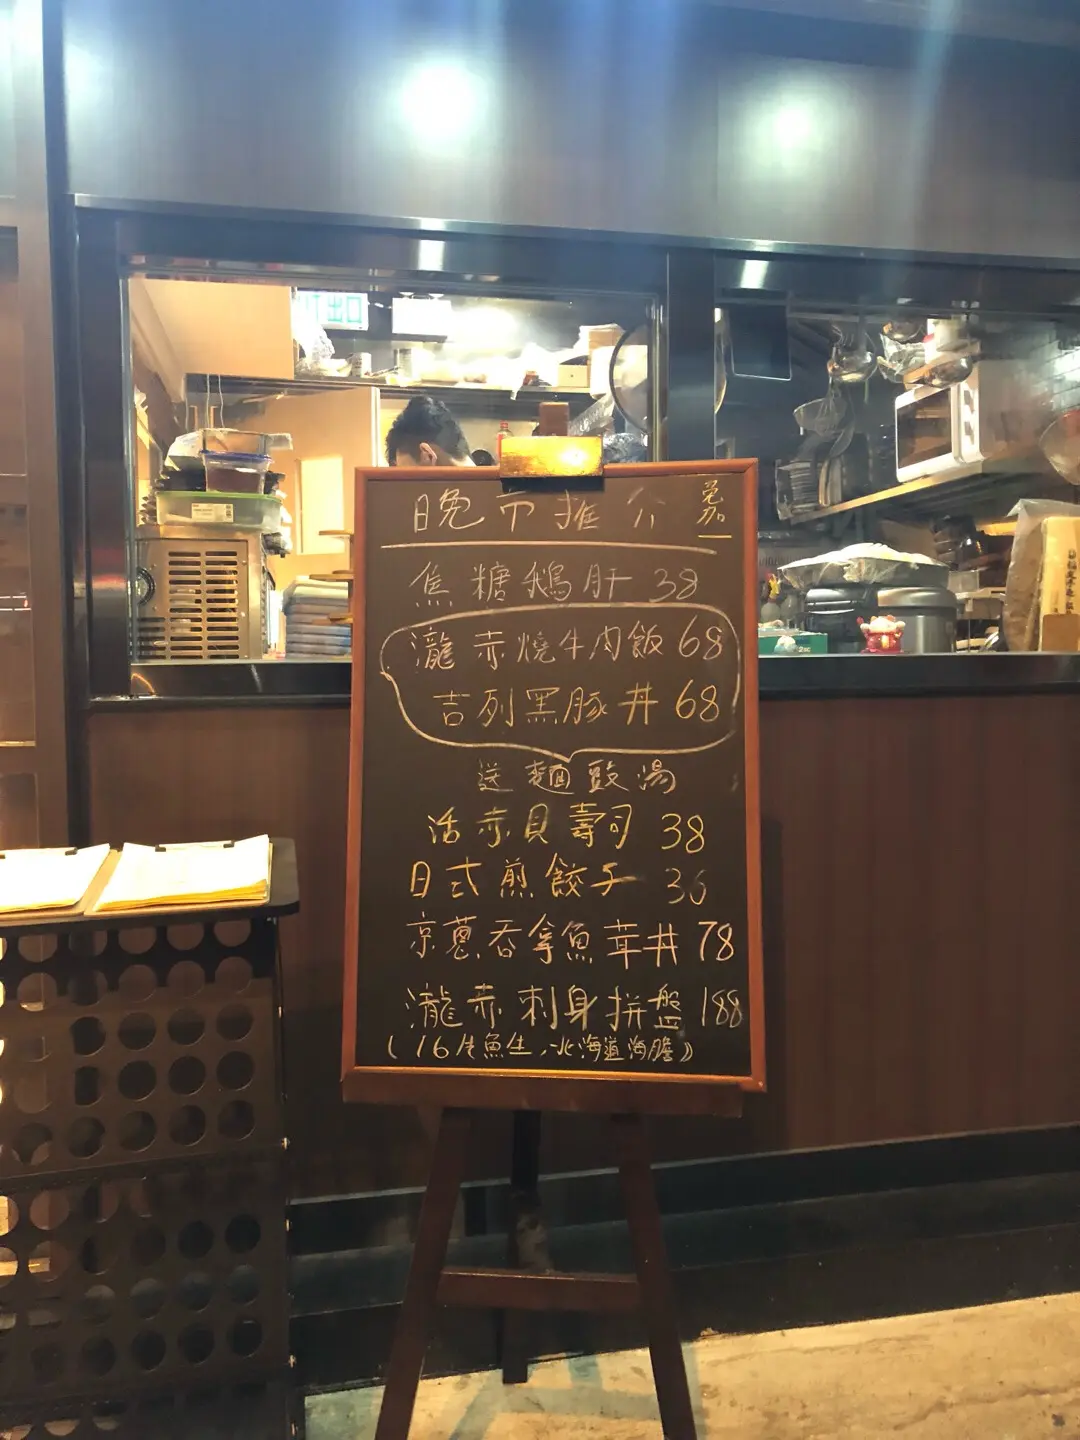 出口
晚市推介 免加一
焦糖鵝肝 38
瀧赤燒牛肉飯 68
吉列黑豚丼 68
送麵豉湯
活赤貝壽司 38
日式煎餃子 36
京蔥吞拿魚茸丼 78
瀧赤刺身拼盤 188
(16片魚生、北海道海膽)